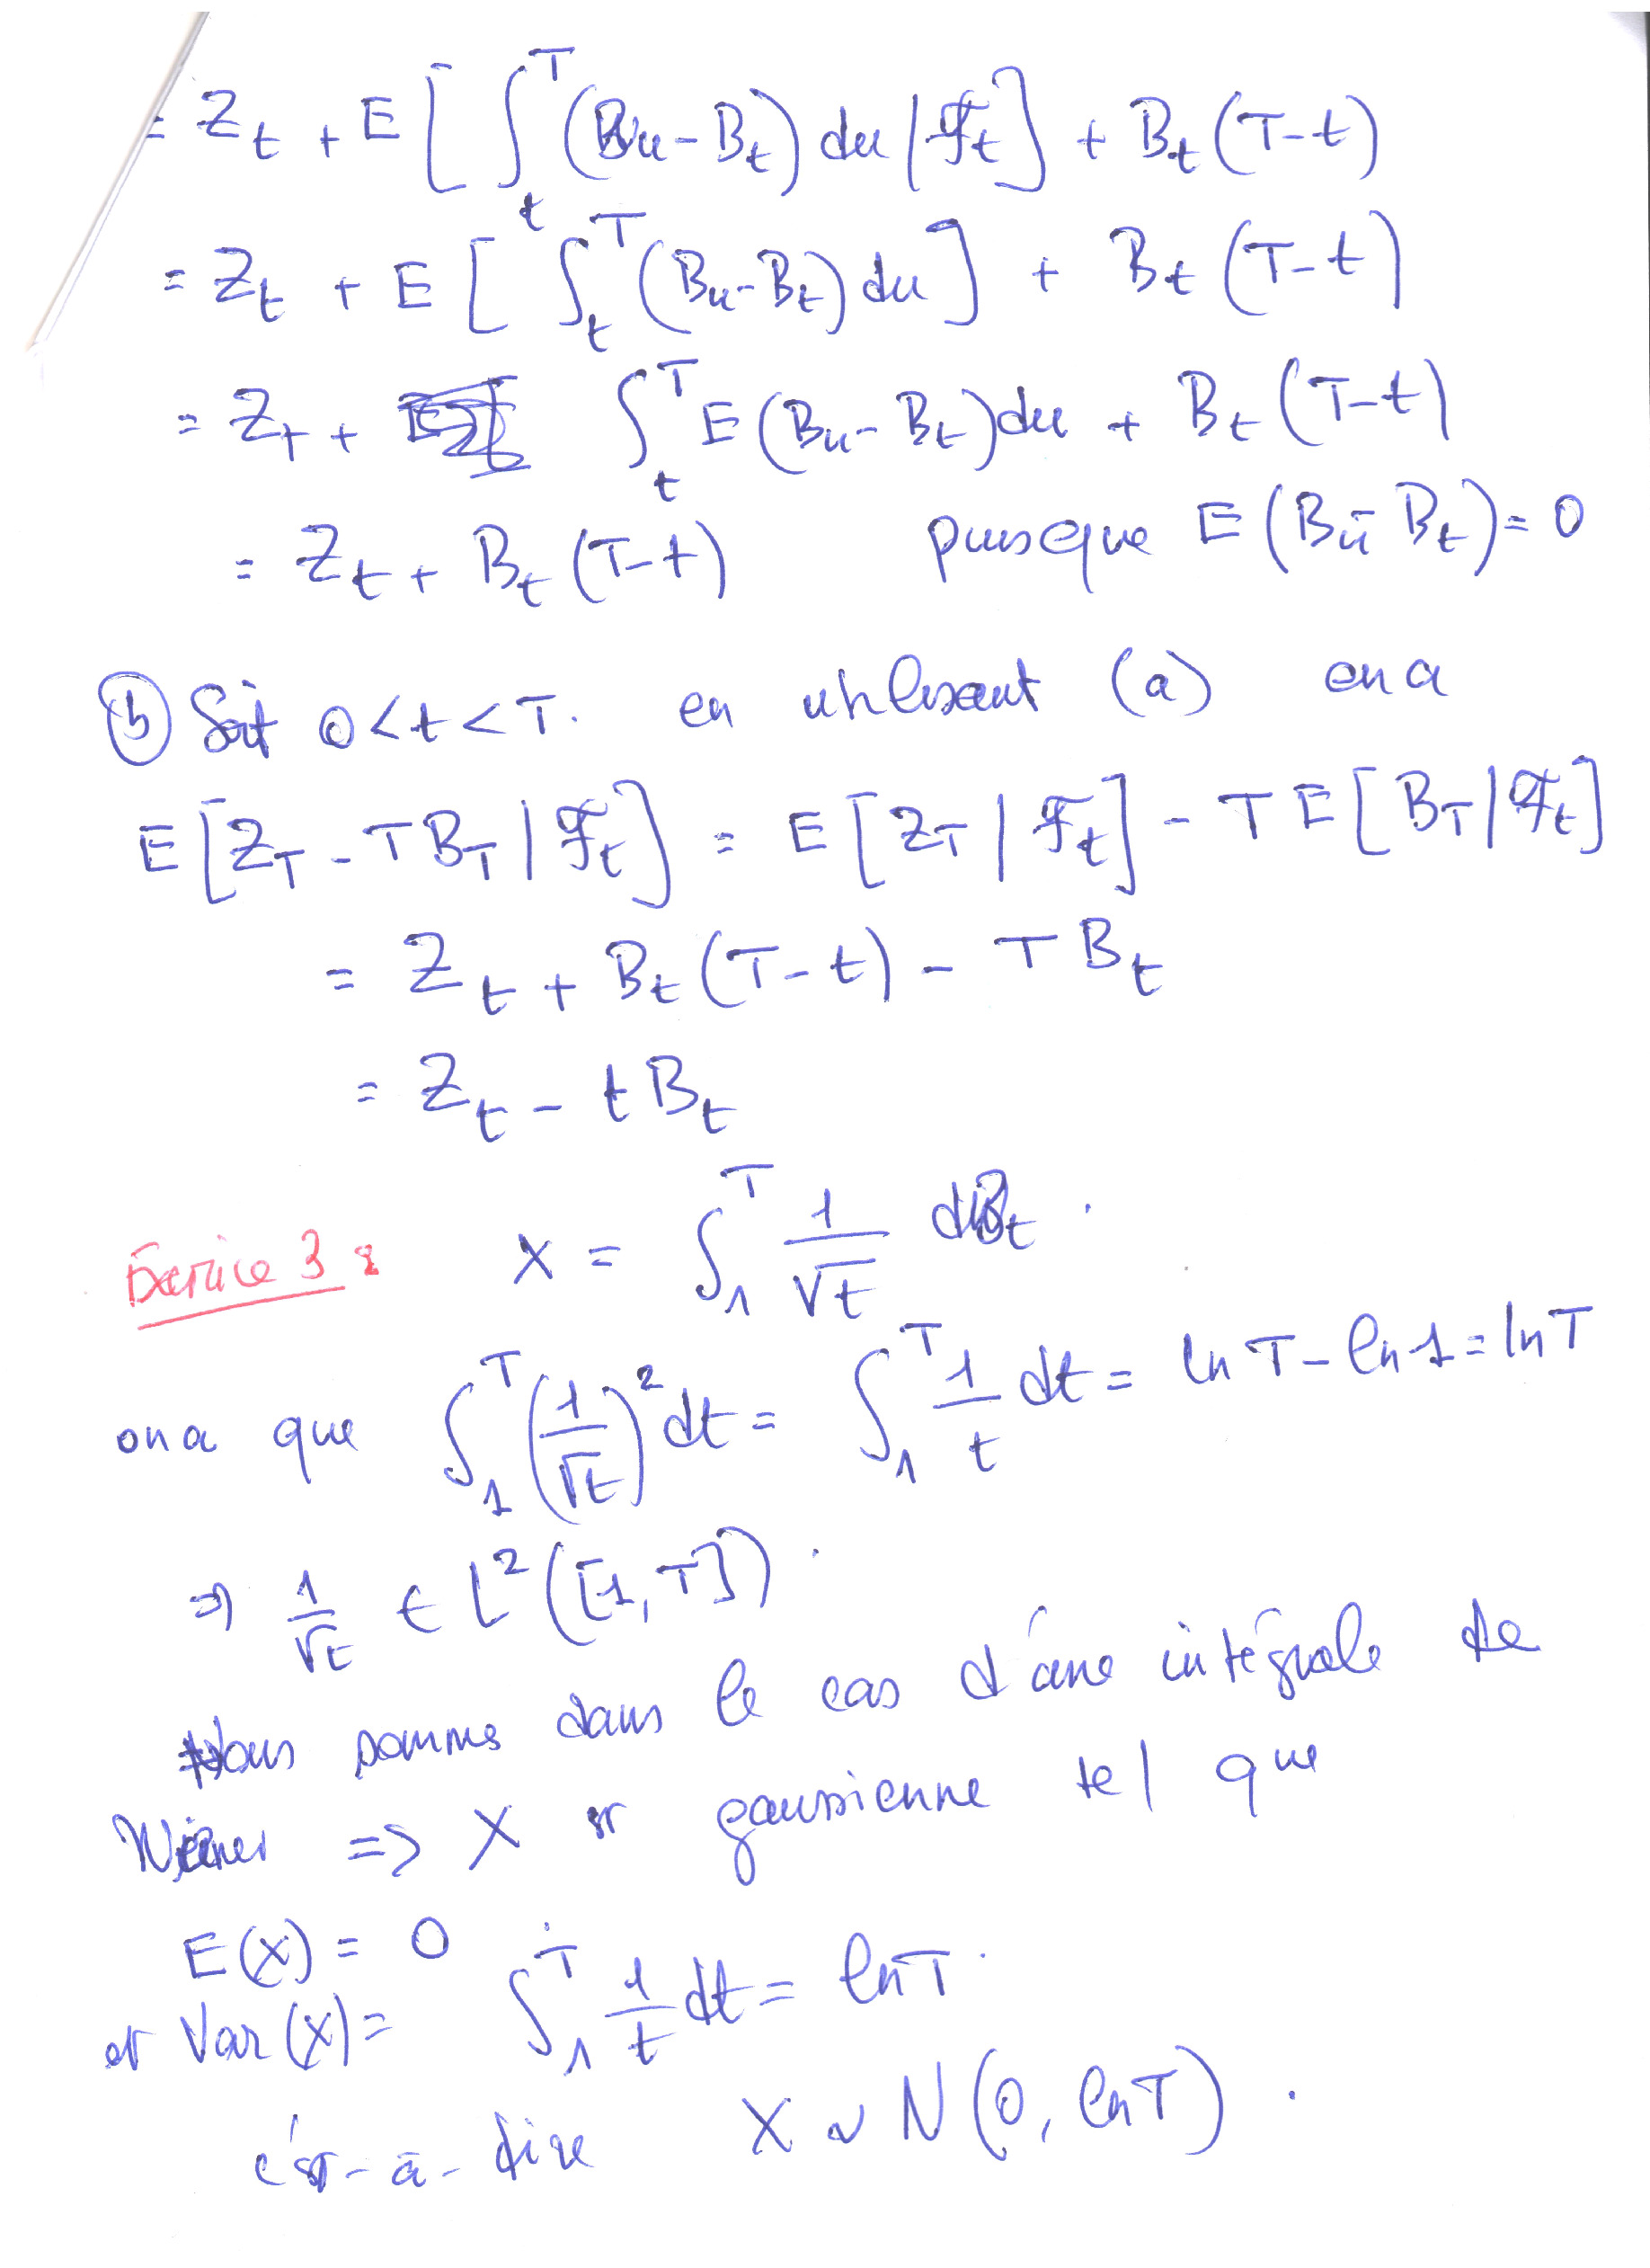 = Z_t + E[∫_t^T (B_u - B_t) du | F_t] + B_t (T-t)
= Z_t + E[∫_t^T (B_u - B_t) du] + B_t (T-t)
= Z_t + ∫_t^T E(B_u - B_t) du + B_t (T-t)
= Z_t + B_t (T-t) puisque E(B_u - B_t) = 0
(b) Soit 0 < t < T. en utilisant (a) on a
E[Z_T - T B_T | F_t] = E[Z_T | F_t] - T E[B_T | F_t]
= Z_t + B_t (T-t) - T B_t
= Z_t - t B_t
Exercice 3 : X = ∫_1^T 1/√t dB_t .
on a que ∫_1^T (1/√t)^2 dt = ∫_1^T 1/t dt = ln T - ln 1 = ln T
⇒ 1/√t ∈ L^2([1, T]) .
Nous sommes dans le cas d'une intégrale de
Wiener => X est gaussienne tel que
E(X) = 0
et Var(X) = ∫_1^T 1/t dt = ln T .
c'est-à-dire X ~ N(0, ln T) .